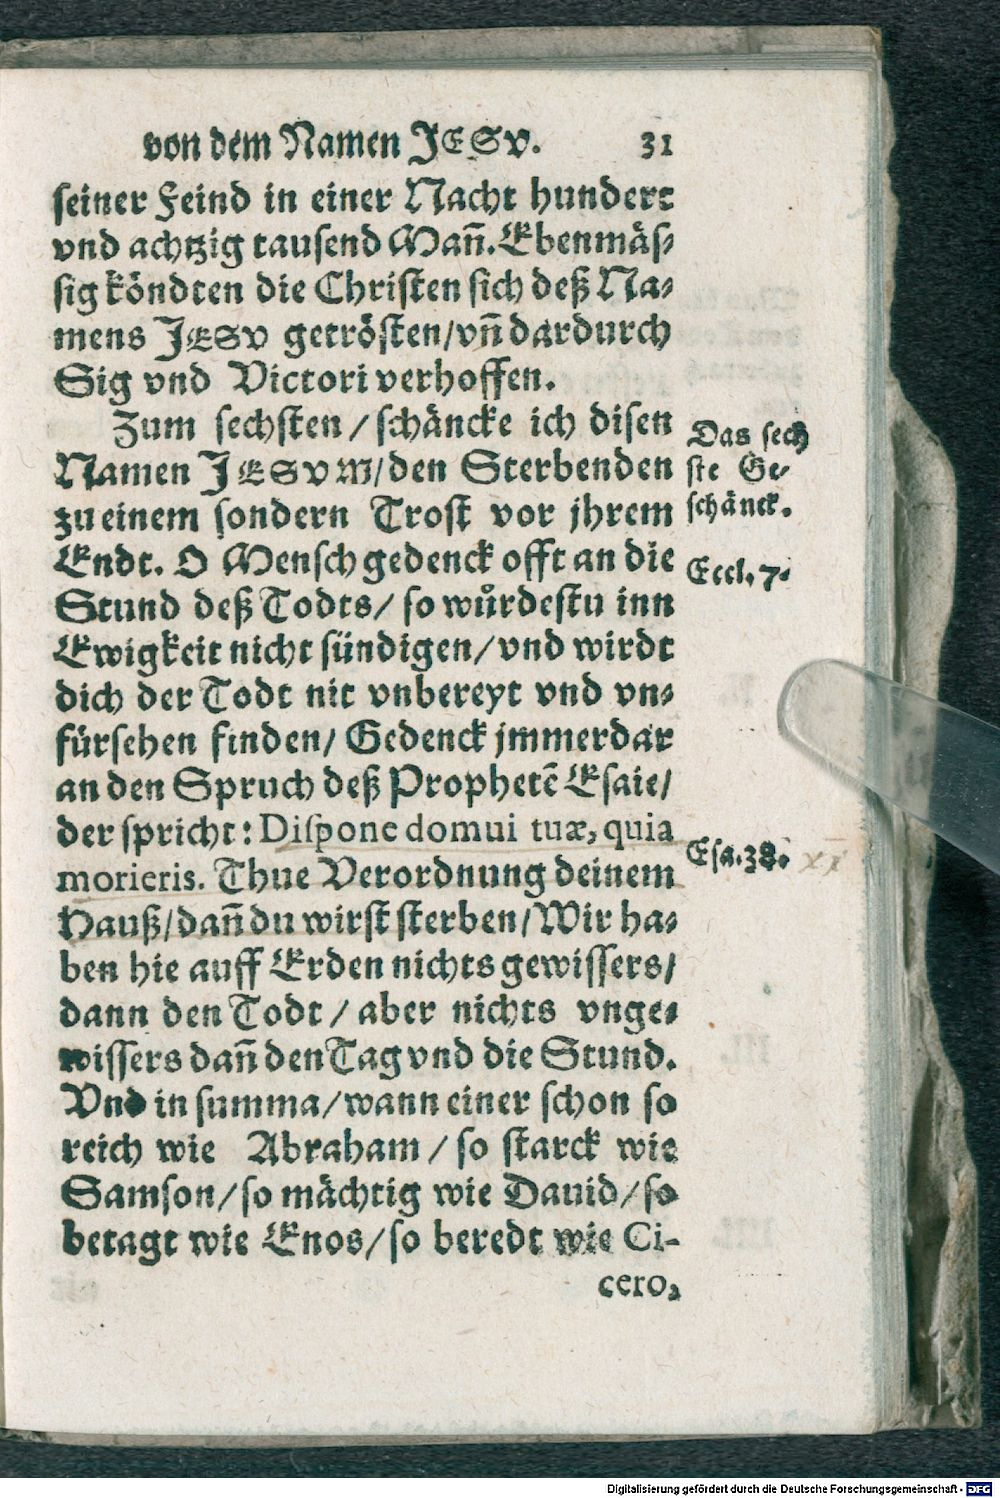 von dem Namen JESV. 31
seiner Feind in einer Nacht hundert
vnd achtzig tausend Mañ. Ebenmäs-
sig köndten die Christen sich deß Na-
mens JESV getrösten/vñ dardurch
Sig vnd Victori verhoffen.
Zum sechsten/schäncke ich disen
Namen JESVM/den Sterbenden
zu einem sondern Trost vor jhrem
Endt. O Mensch gedenck offt an die
Stund deß Todts/so wůrdestu inn
Ewigkeit nicht sündigen/vnd wirdt
dich der Todt nit vnbereyt vnd vn-
fürsehen finden/Gedenck jmmerdar
an den Spruch deß Prophetẽ Esaie/
der spricht: Dispone domui tuæ, quia
morieris. Thue Verordnung deinem
Hauß/dañ du wirst sterben/Wir ha-
ben hie auff Erden nichts gewissers/
dann den Todt/aber nichts vnge-
wissers dañ den Tag vnd die Stund.
Vnd in summa/wann einer schon so
reich wie Abraham/so starck wie
Samson/so mächtig wie Dauid/so
betagt wie Enos/so beredt wie Ci-
cero,
Das sech
ste Ge-
schänck.
Eccl. 7.
Esa. 38.
Digitalisierung gefördert durch die Deutsche Forschungsgemeinschaft - DFG